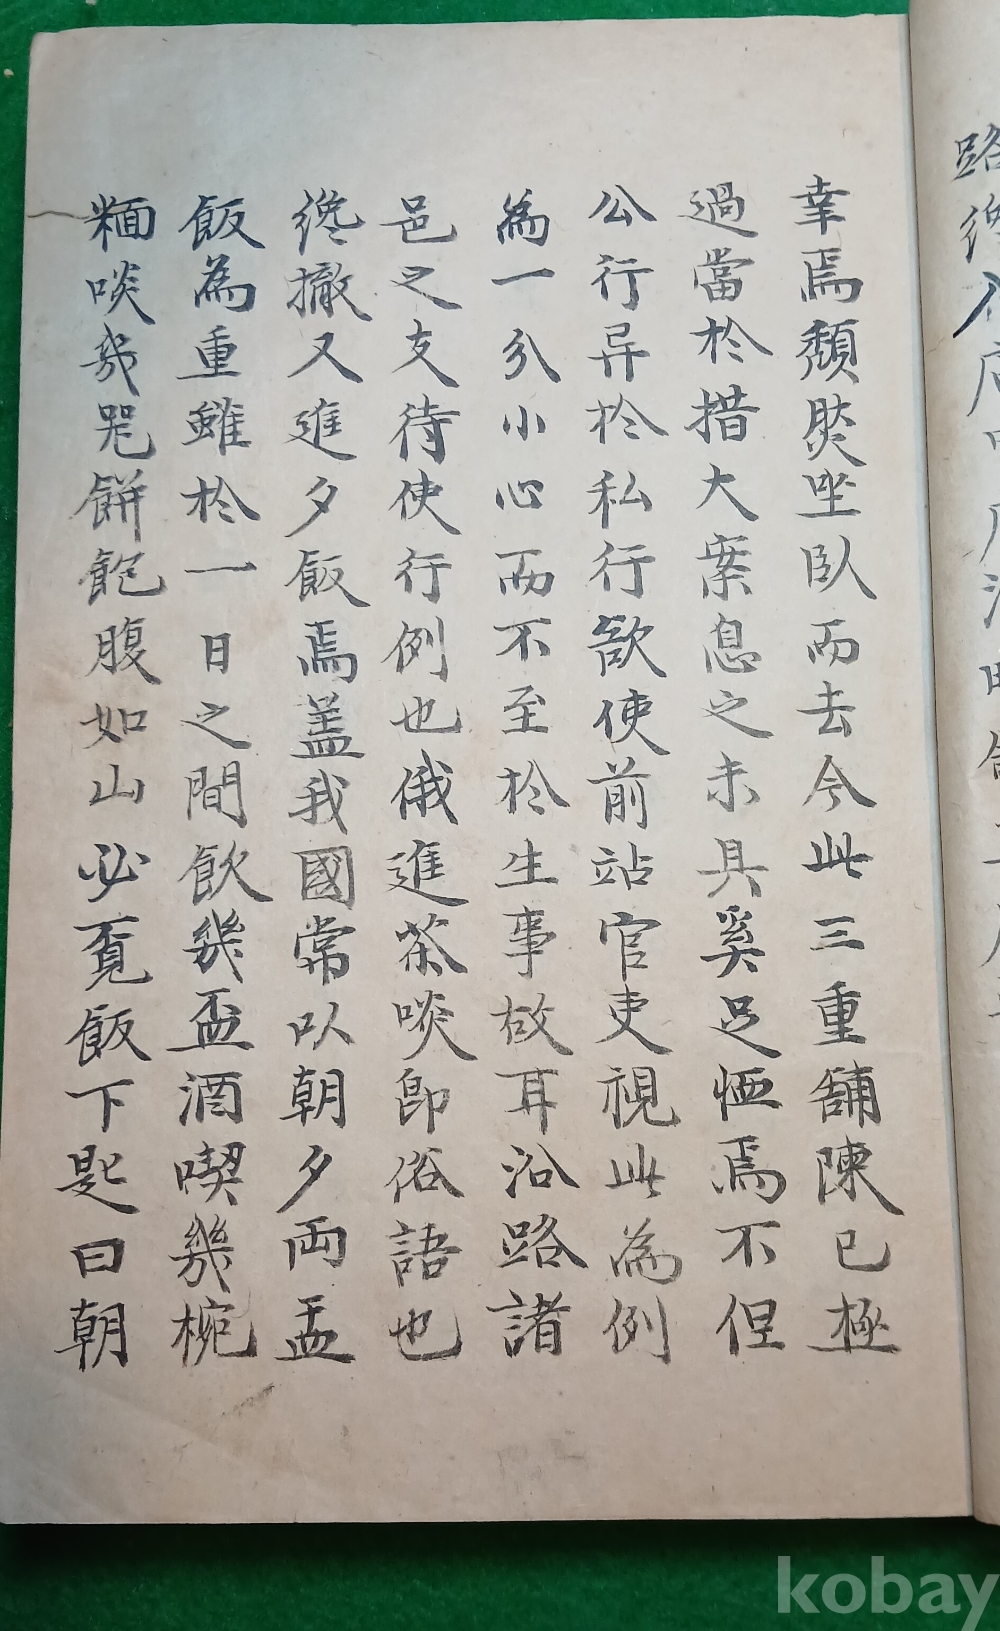 幸焉頹然坐臥而去今此三重舖陳已極
過當於措大案息之未具奚足恠焉不但
公行异於私行欲使前站官吏視此為例
為一分小心而不至於生事故耳沿路諸
邑之支待使行例也俄進茶啖即俗語也
纔撤又進夕飯焉盖我國常以朝夕両盂
飯為重雖於一日之間飲幾盃酒喫幾椀
糆啖幾咒餅飽腹如山必覔飯下匙曰朝
路
kobay